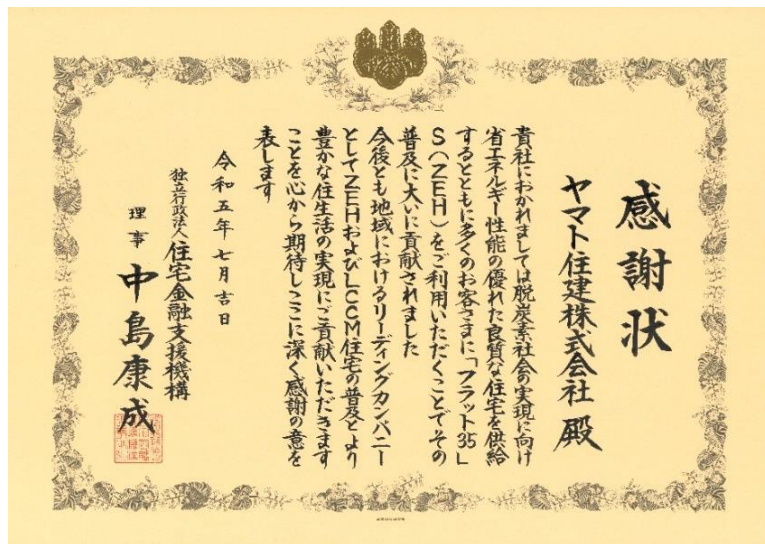 感謝状
ヤマト住建株式会社 殿
貴社におかれましては脱炭素社会の実現に向け
省エネルギー性能の優れた良質な住宅を供給
するとともに多くのお客さまに「フラット35」
S(ZEH)をご利用いただくことでその
普及に大いに貢献されました
今後とも地域におけるリーディングカンパニー
としてZEHおよびLCCM住宅の普及とより
豊かな住生活の実現にご貢献いただきます
ことを心から期待しここに深く感謝の意を
表します
令和五年七月吉日
独立行政法人住宅金融支援機構
理事 中島康成